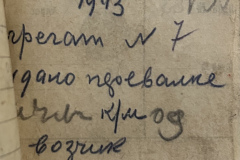 1943
грегат N 7
удано перевалке
к/м од
возчик